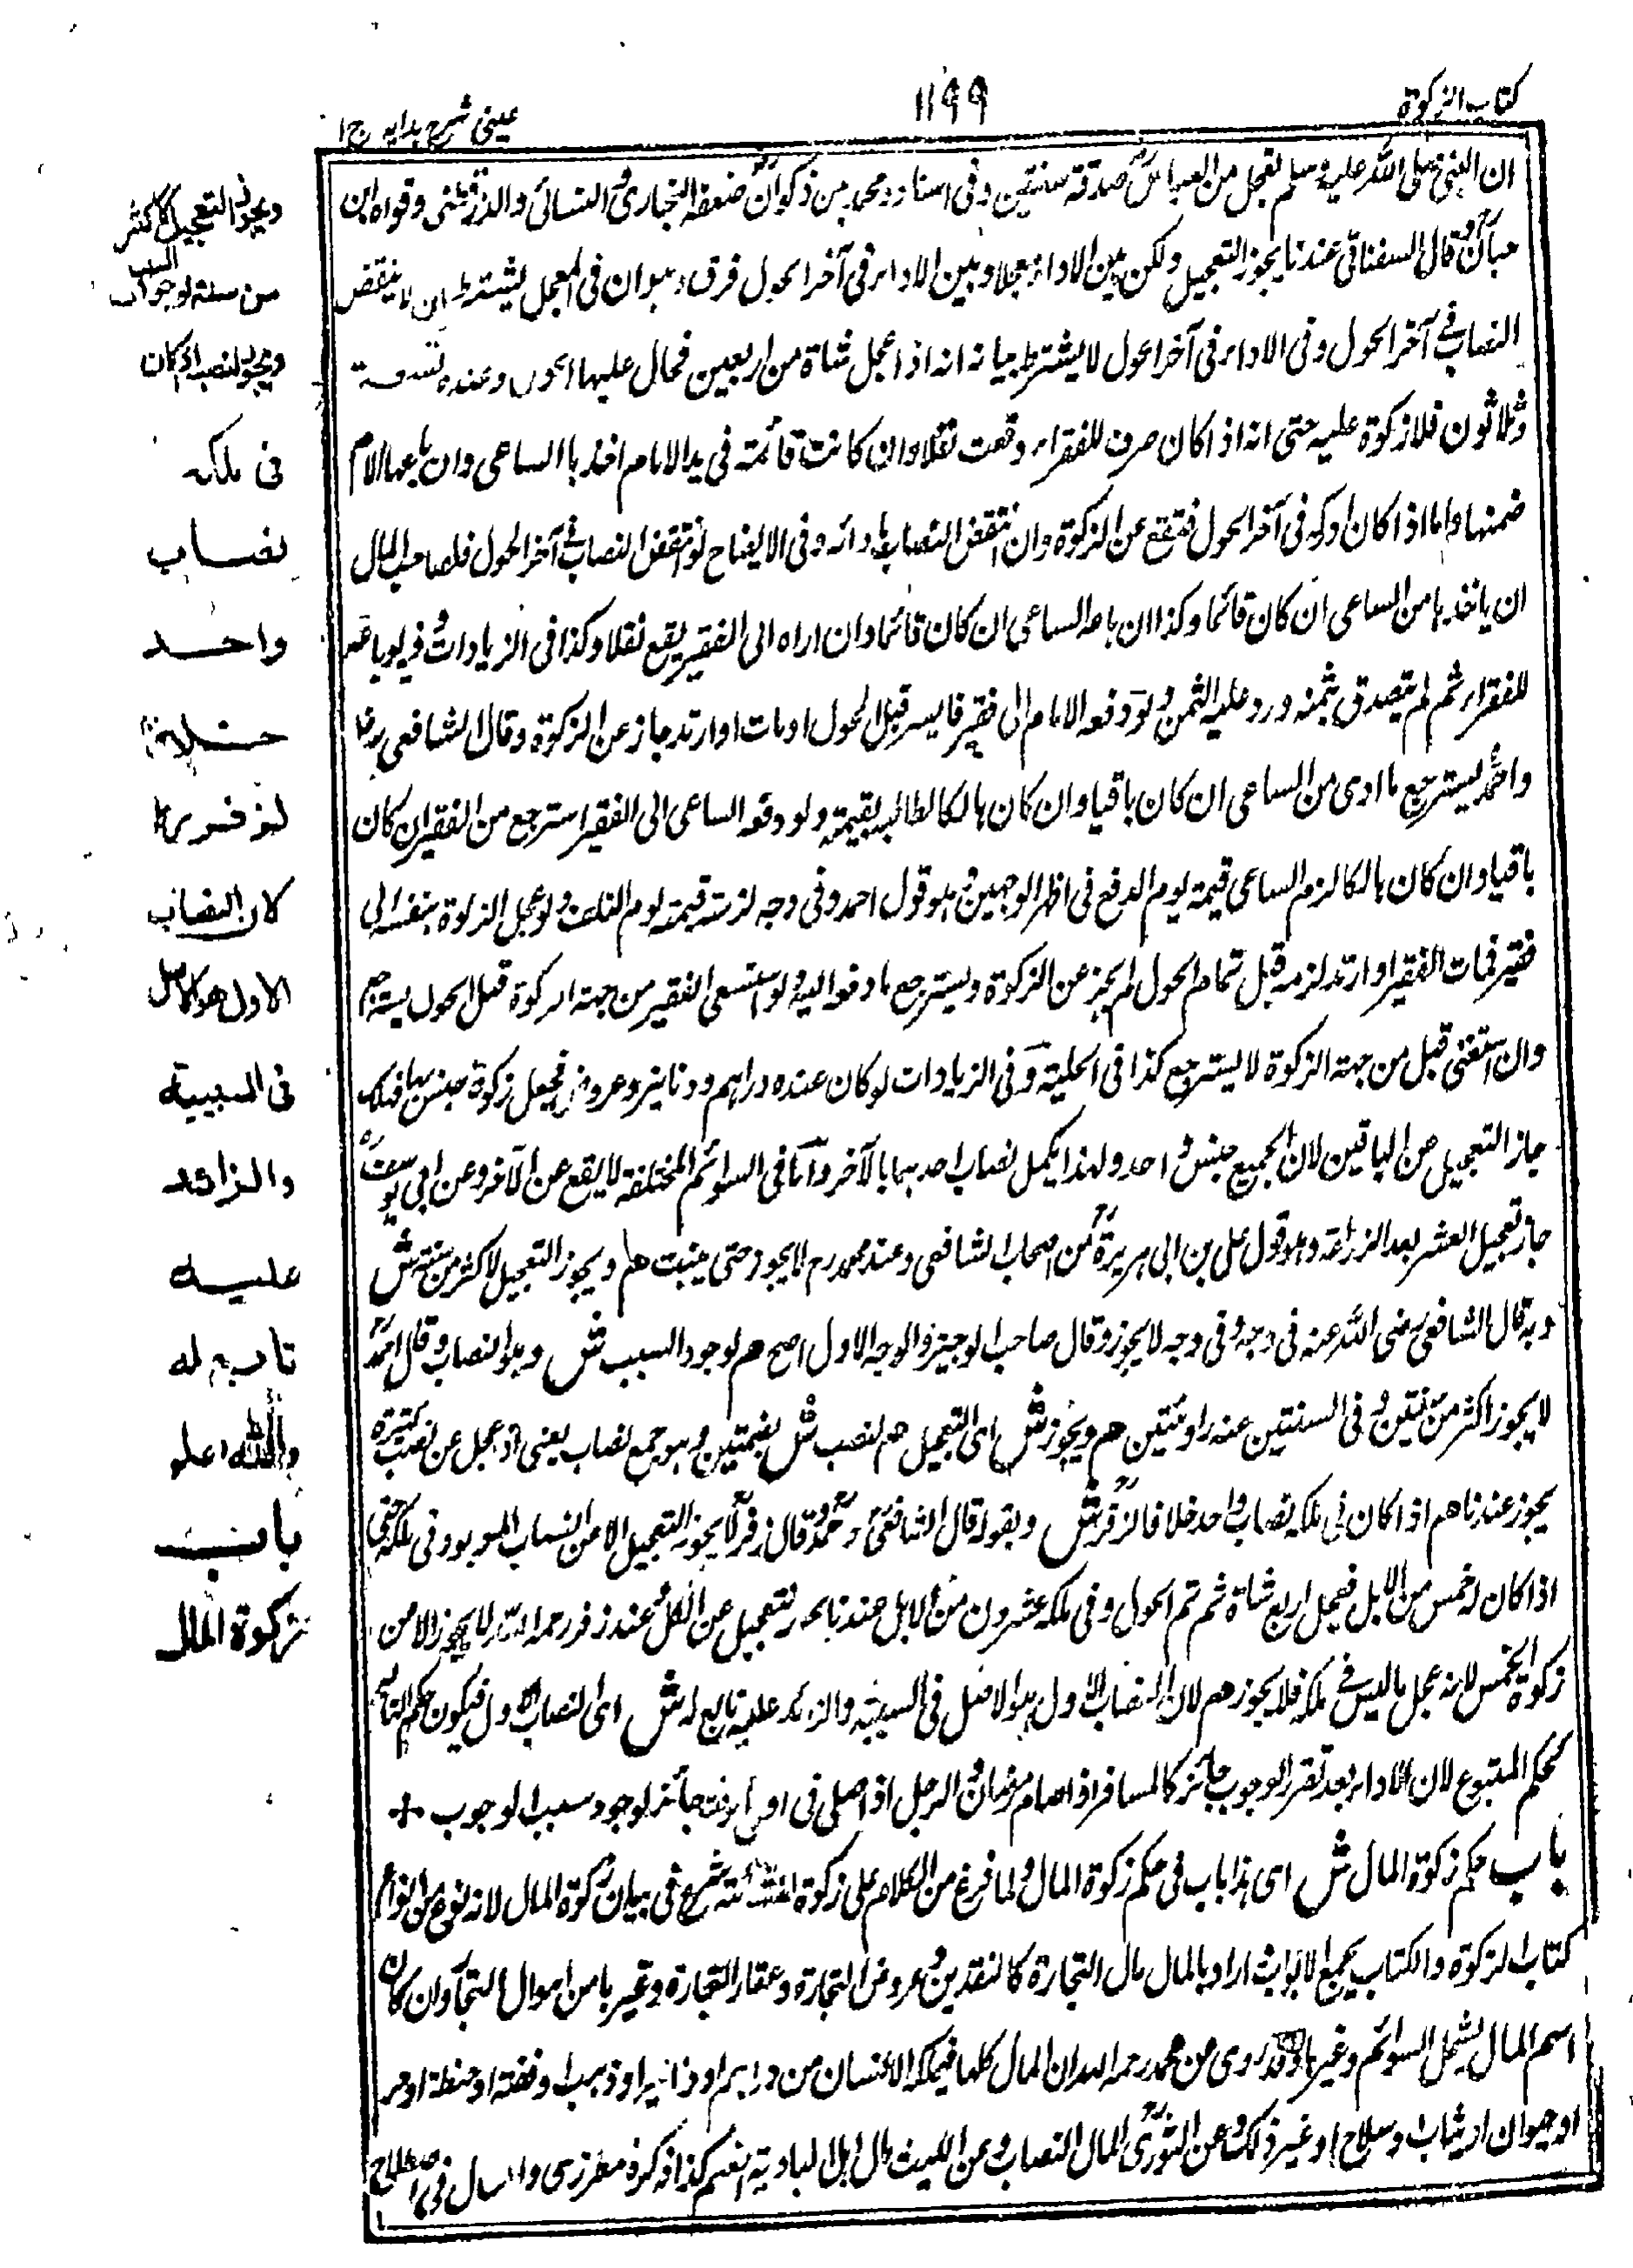 كتاب الزكوة
١١٩٩
عينى شرح هدايه ج ١
ان النبي صلى الله عليه وسلم تعجل من العباس صدقة سنتين وفى اسناده محمد بن ذكوان ضعفه البخارى والنسائى والدارقطنى وقواه ابن
حبان وقال السغناقى عندنا يجوز التعجيل ولكن بين الاداء معجلا وبين الاداء فى آخر الحول فرق وهو ان فى المعجل يشترط ان لا ينقض
النصاب فى آخر الحول وفى الاداء فى آخر الحول لا يشترط بيانه انه اذا عجل شاة من اربعين فحال عليها الحول وعنده تسعة
وثلاثون فلا زكوة عليه حتى انه اذا كان صرف للفقراء وقعت نفلا وان كانت قائمة فى يد الامام اخذها الساعى وان باعها الامام
ضمنها واما اذا كان اداؤه فى آخر الحول فتقع عن الزكوة وان انتقض النصاب بادائه وفى الايضاح لو انتقض النصاب فى آخر الحول فلصاحب المال
ان ياخذها من الساعى ان كان قائما وكذا ان باعه الساعى ان كان قائما وان اداه الى الفقير يقع نفلا وكذا فى الزيادات وفيه لو باعه
للفقراء ثم لم يتصدق بثمنه ورد عليه الثمن ولو دفعه الامام الى فقير فايسر قبل الحول او مات او ارتد جاز عن الزكوة وقال الشافعى
واحمد يسترجع ما ادى من الساعى ان كان باقيا وان كان هالكا طالبه بقيمته ولو دفعه الساعى الى الفقير استرجع من الفقير ان كان
باقيا وان كان هالكا لزم الساعى قيمة يوم الدفع فى اظهر الوجهين وهو قول احمد وفى وجه لزمته قيمته يوم التلف ولو عجل الزكوة بنفسه الى
فقير فمات الفقير او ارتد لزمه قبل تمام الحول لم يجز عن الزكوة ويسترجع ما دفعه اليه ولو استغنى الفقير من جهة الزكوة قبل الحول يسترجع
وان استغنى قبل من جهة الزكوة لا يسترجع كذا فى الحلية وفى الزيادات لو كان عنده دراهم ودنانير وعروض فعجل زكوة جنس منها فهلك
جاز التعجيل من الباقين لان الجميع جنس واحد ولهذا يكمل نصاب احدهما بالآخر واما فى السوائم المختلفة لا يقع عن الآخر وعن ابى يوسف
جاز تعجيل العشر بعد الزراعة وهو قول على بن ابى هريرة من اصحاب الشافعى وعند محمد رح لا يجوز حتى ينبت هم ويجوز التعجيل لاكثر من سنة ش
وبه قال الشافعى رضى الله عنه فى وجه وفى وجه لا يجوز وقال صاحب الوجيز والوجه الاول اصح هم لوجود السبب ش وهو النصاب وقال احمد
لا يجوز اكثر من سنتين وفى السنتين عنه روايتين هم ويجوز ش اى التعجيل هم لنصب ش بضمتين وهو جمع نصاب يعنى اذا عجل عن نصب كثيرة
يجوز عندنا هم اذا كان فى ملكه نصاب واحد خلافا لزفر ش وبقوله قال الشافعى واحمد وقال زفر لا يجوز التعجيل الا من النصاب الموجود فى ملكه حتى
اذا كان له خمس من الابل فعجل اربع شاة ثم تم الحول وفى ملكه عشرون من الابل عندنا يجوز التعجيل عن الكل وعند زفر رحمه الله لا يجوز الا من
زكوة الخمس لانه عجل ما ليس فى ملكه فلا يجوز هم لان النصاب الاول هو الاصل فى السببية والزائد عليه تابع له ش اى النصاب الاول فيكون حكم التابع
كحكم المتبوع لان الاداء بعد تقرر الوجوب جائز كالمسافر اذا صام رمضان والرجل اذا صلى فى اول الوقت جائز لوجود سبب الوجوب +
باب حكم زكوة المال ش اى هذا باب فى حكم زكوة المال ولما فرغ من الكلام على زكوة السائمة شرع فى بيان زكوة المال لانه نوع من انواع
كتاب الزكوة والكتاب يجمع الابواب اراد بالمال مال التجارة كالنقدين وعروض التجارة وعقار التجارة وغيرها من اموال التجارة وان كان
اسم المال يشمل السوائم وغيرها وقد روى عن محمد رحمه الله ان المال كلما يملكه الانسان من دراهم او دنانير او ذهب او فضة او حنطة او
او حيوان او ثياب او سلاح او غير ذلك وعن الثورى المال النصاب وعن الليث مال اهل البادية النعم كذا ذكره مطرزى والمال فى اصطلاح
ويجوز التعجيل لاكثر
من سنة لوجود السبب
ويجوز لنصب اذا كان
فى ملكه
نصاب
واحد
خلافا
لزفر
لان النصاب
الاول هو الاصل
فى السببية
والزائد
عليه
تابع له
والله اعلم
باب
زكوة المال